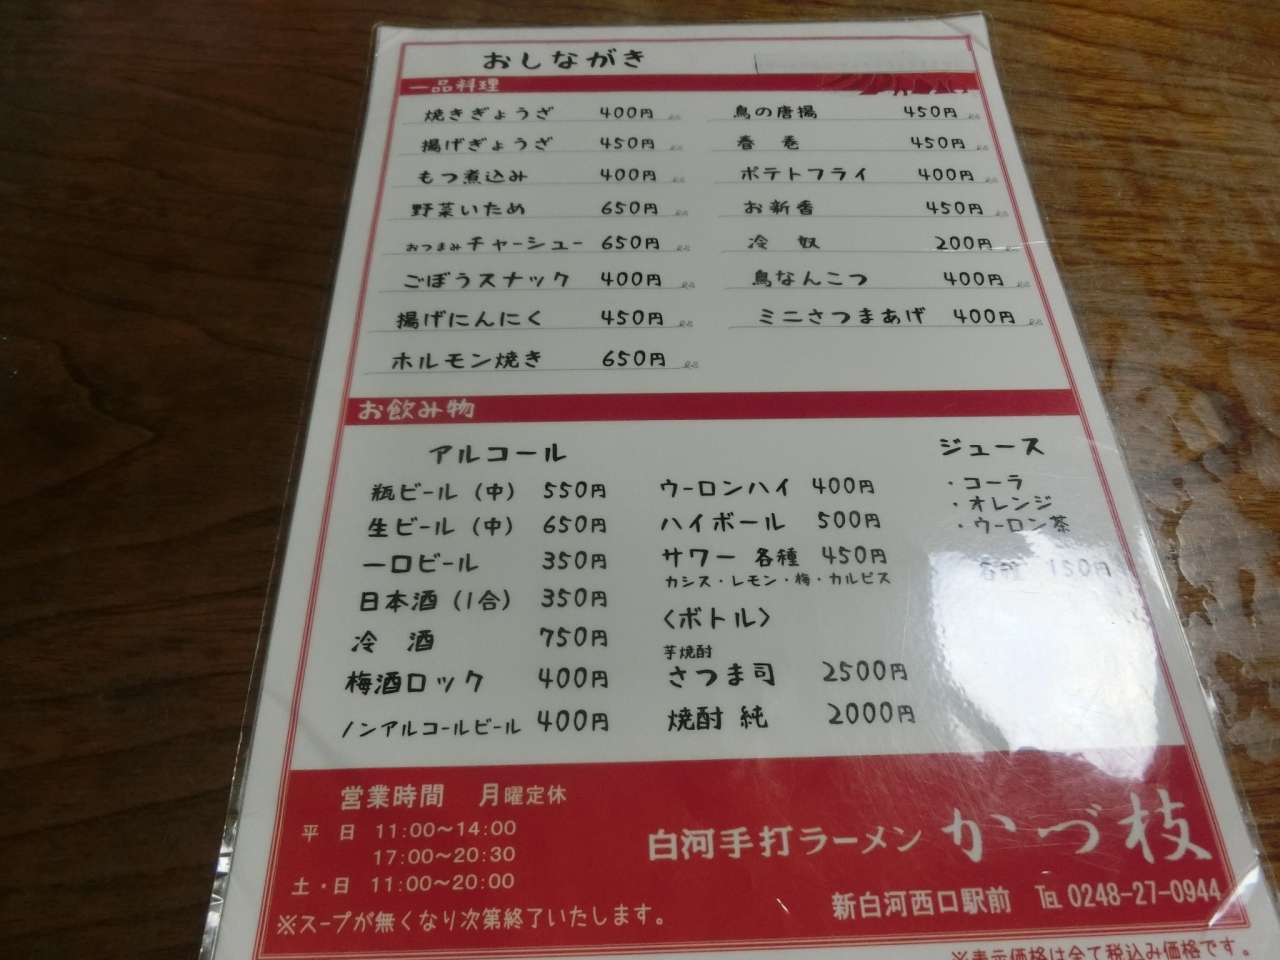 おしながき
一品料理
焼きぎょうざ 400円
揚げぎょうざ 450円
もつ煮込み 400円
野菜いため 650円
おつまみチャーシュー 650円
ごぼうスナック 400円
揚げにんにく 450円
ホルモン焼き 650円
鳥の唐揚 450円
春巻 450円
ポテトフライ 400円
お新香 450円
冷奴 200円
鳥なんこつ 400円
ミニさつまあげ 400円
お飲み物
アルコール
瓶ビール（中） 550円
生ビール（中） 650円
一口ビール 350円
日本酒（1合） 350円
冷酒 750円
梅酒ロック 400円
ノンアルコールビール 400円
ウーロンハイ 400円
ハイボール 500円
サワー 各種 450円
カシス・レモン・梅・カルピス
〈ボトル〉
芋焼酎
さつま司 2500円
焼酎 純 2000円
ジュース
・コーラ
・オレンジ
・ウーロン茶
各種 150円
営業時間 月曜定休
平 日 11:00〜14:00
17:00〜20:30
土・日 11:00〜20:00
※スープが無くなり次第終了いたします。
白河手打ラーメン かづ枝
新白河西口駅前 ℡ 0248-27-0944
※表示価格は全て税込み価格です。